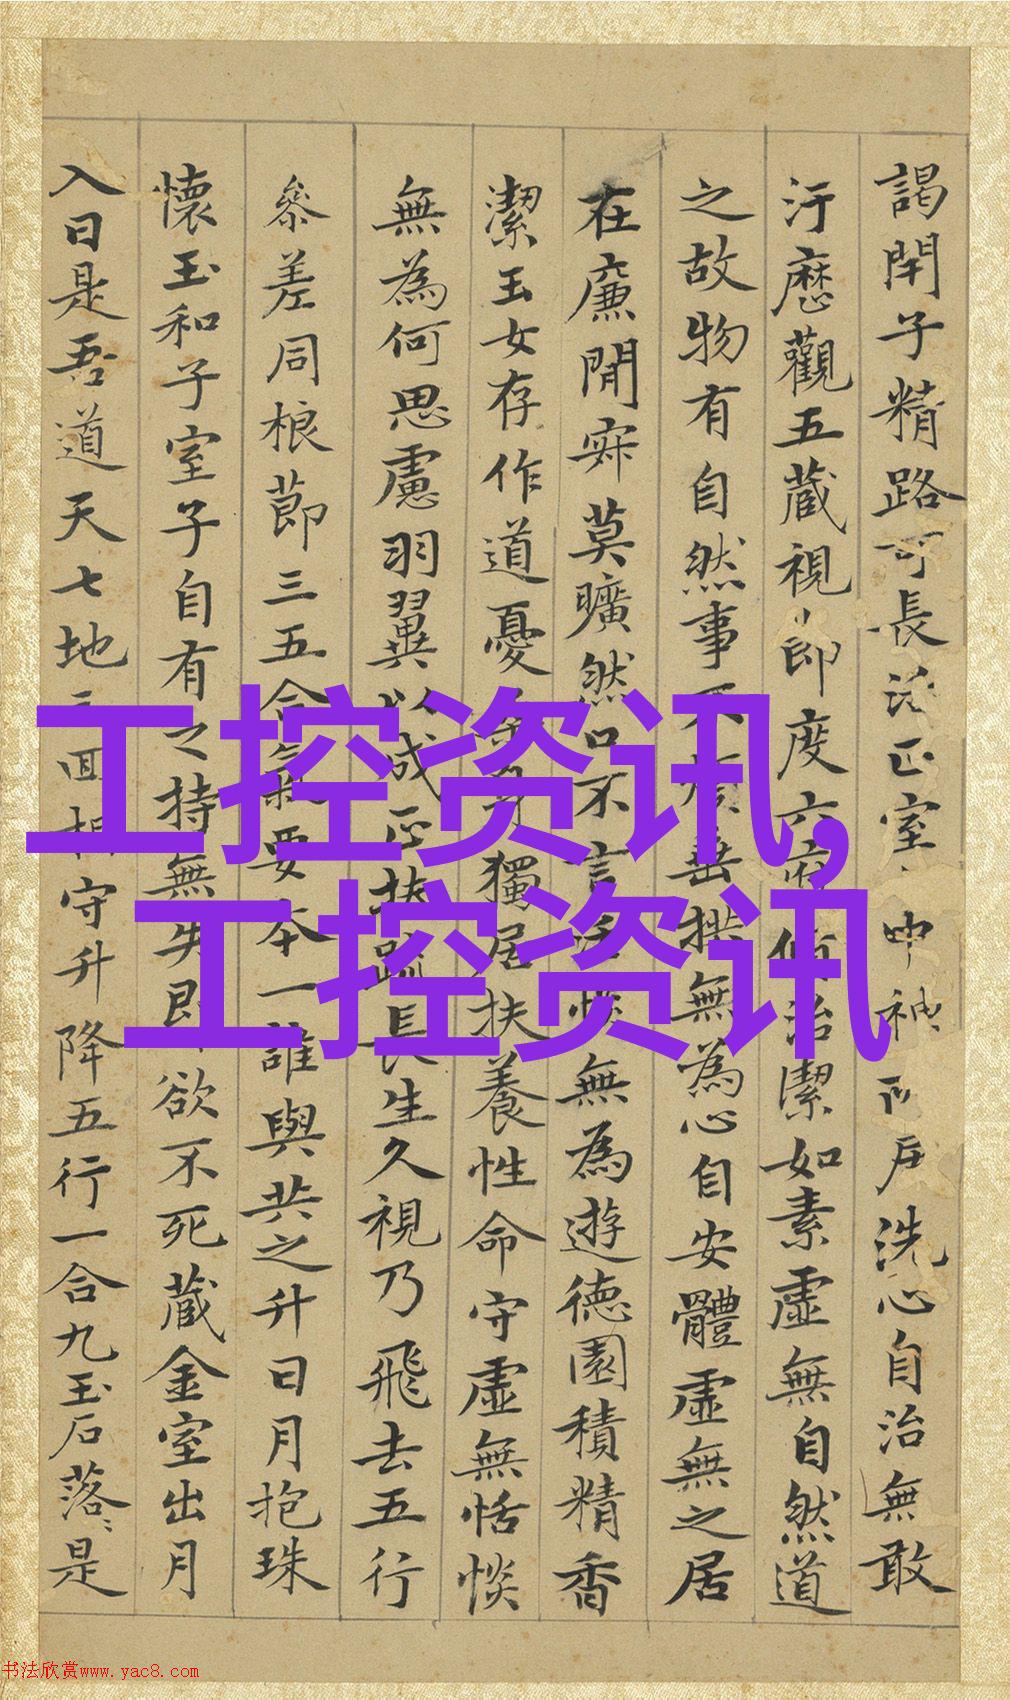 工控资讯,
工控资讯
謁子精路可長活正室中神所居洗心自治無敢
汙歷觀五藏視節度六府脩治潔如素虛無自然道
之故物有自然事不煩垂拱無為心自安體虛無之居
在廉閒寂莫曠然口不言恬惔無為遊德園積精香
潔玉女存作道憂身獨居扶養性命守虛無恬惔
無為何思慮羽翼以成正扶踈長生久視乃飛去五行
參差同根節三五合氣要本一誰與共之升日月抱珠
懷玉和子室子自有之持無失即欲不死藏金室出月
入日是吾道天七地三回相守升降五行一合九玉石落〻是
书法欣赏www.yac8.com